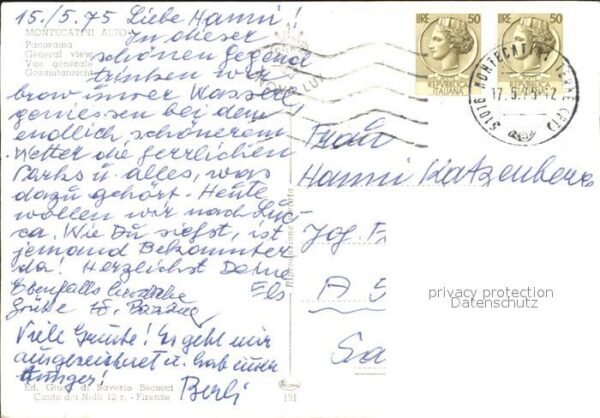 15./5.75 Liebe Hanni!
MONTECATINI ALTO
In dieser
Panorama
General view
Vue générale
Gesamtansicht
schönen Gegend
trinken wir
brav unser Wasserl,
geniessen bei dem
endlich schönerem
Wetter die herrlichen
Parks u. alles, was
dazu gehört. Heute
wollen wir nach Luc-
ca. Wie Du siehst, ist
jemand Bekannter
da! Herzlichst Deine
Els
Ebenfalls herzliche
Grüße
Viele Grüsse! Es geht mir
ausgezeichnet u. hab immer
Hunger!
Berli
Ed. Giusti di Saverio Becocci
Canto dei Nelli 12 r. - Firenze
191
LIRE 50
REPUBBLICA
ITALIANA
LIRE 50
REPUBBLICA
ITALIANA
51016 MONTECATINI TERME (PT)
17.5.75-12
LUX
Frau
Hanni Katzenberg
A 5
Sa
privacy protection
Datenschutz